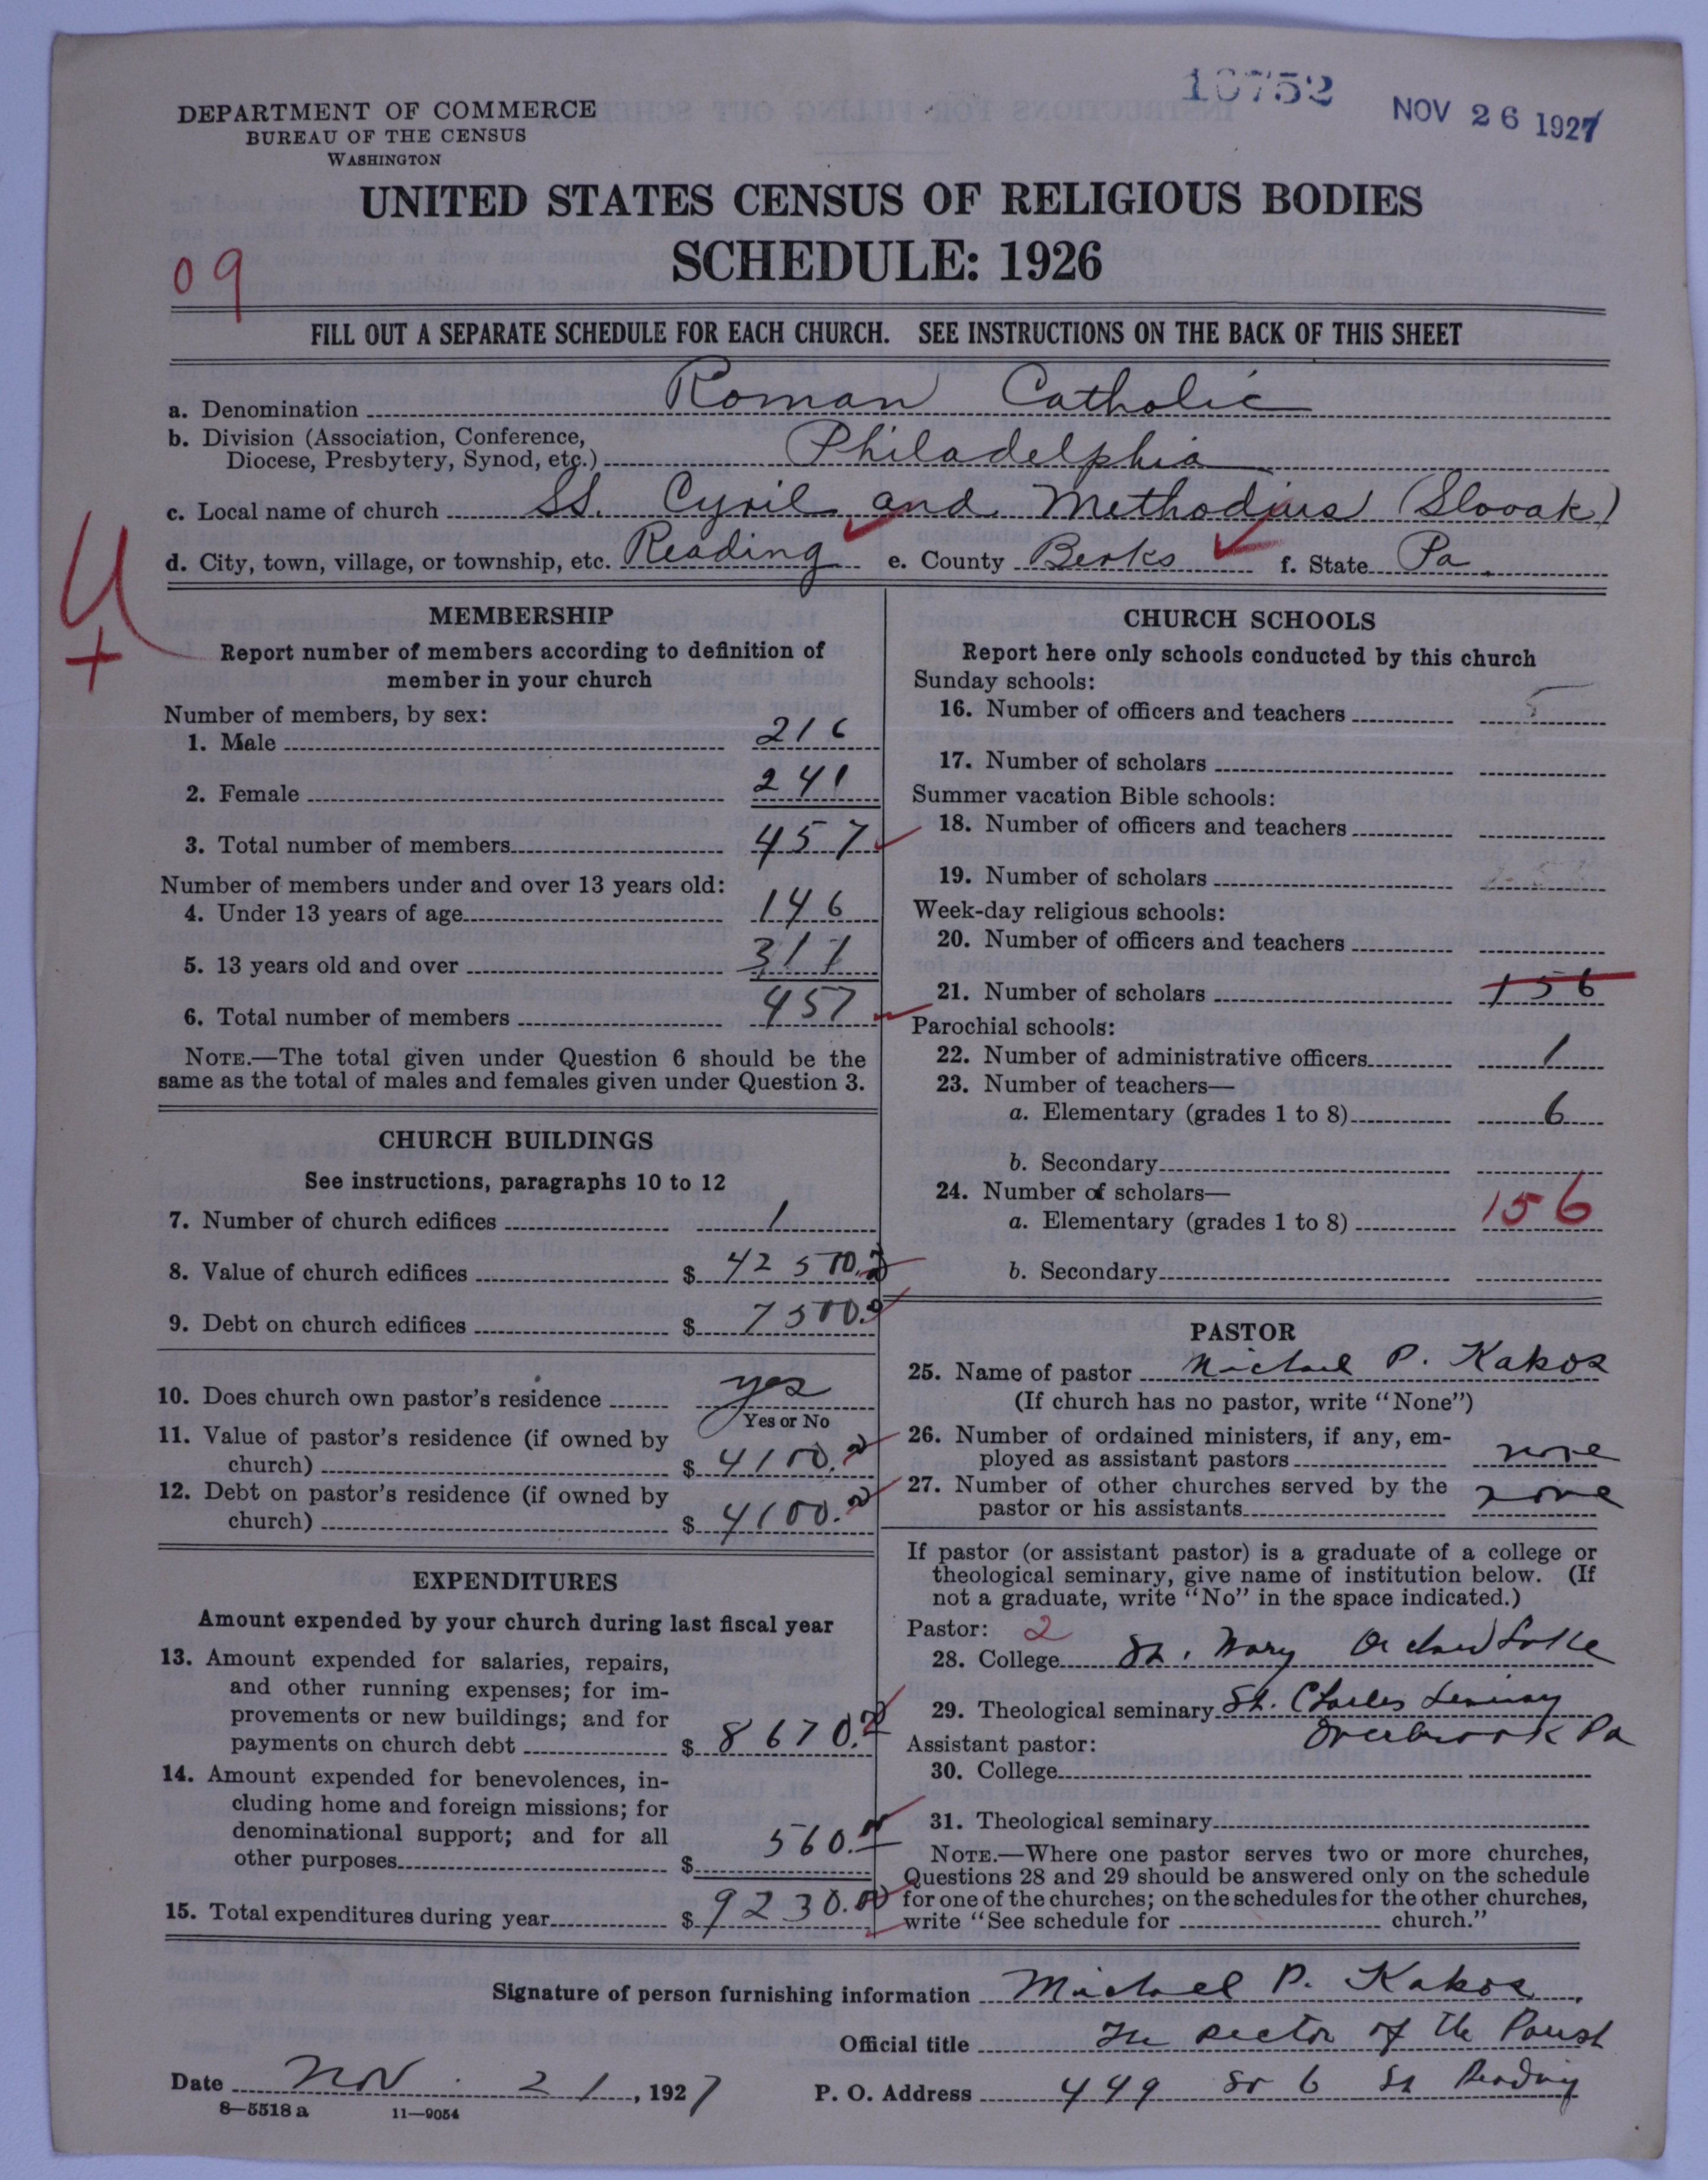 10752
NOV 26 1927
DEPARTMENT OF COMMERCE
BUREAU OF THE CENSUS
WASHINGTON
UNITED STATES CENSUS OF RELIGIOUS BODIES
SCHEDULE: 1926
09
FILL OUT A SEPARATE SCHEDULE FOR EACH CHURCH. SEE INSTRUCTIONS ON THE BACK OF THIS SHEET
a. Denomination Roman Catholic
b. Division (Association, Conference,
Diocese, Presbytery, Synod, etc.) Philadelphia
c. Local name of church SS. Cyril and Methodius (Slovak)
d. City, town, village, or township, etc. Reading e. County Berks f. State Pa.
U
+
MEMBERSHIP
Report number of members according to definition of
member in your church
Number of members, by sex:
1. Male 216
2. Female 241
3. Total number of members 457
Number of members under and over 13 years old:
4. Under 13 years of age 146
5. 13 years old and over 311
6. Total number of members 457
NOTE.—The total given under Question 6 should be the
same as the total of males and females given under Question 3.
CHURCH BUILDINGS
See instructions, paragraphs 10 to 12
7. Number of church edifices 1
8. Value of church edifices $ 42500.
9. Debt on church edifices $ 7500.
10. Does church own pastor's residence yes
Yes or No
11. Value of pastor's residence (if owned by
church) $ 4100.
12. Debt on pastor's residence (if owned by
church) $ 4100.
EXPENDITURES
Amount expended by your church during last fiscal year
13. Amount expended for salaries, repairs,
and other running expenses; for im-
provements or new buildings; and for
payments on church debt $ 8670.
14. Amount expended for benevolences, in-
cluding home and foreign missions; for
denominational support; and for all
other purposes $ 560.
15. Total expenditures during year $ 9230.00
CHURCH SCHOOLS
Report here only schools conducted by this church
Sunday schools:
16. Number of officers and teachers 5
17. Number of scholars
Summer vacation Bible schools:
18. Number of officers and teachers
19. Number of scholars
Week-day religious schools:
20. Number of officers and teachers
21. Number of scholars 156
Parochial schools:
22. Number of administrative officers 1
23. Number of teachers—
a. Elementary (grades 1 to 8) 6
b. Secondary
24. Number of scholars—
a. Elementary (grades 1 to 8) 156
b. Secondary
PASTOR
25. Name of pastor Michael P. Kakos
(If church has no pastor, write "None")
26. Number of ordained ministers, if any, em-
ployed as assistant pastors none
27. Number of other churches served by the
pastor or his assistants none
If pastor (or assistant pastor) is a graduate of a college or
theological seminary, give name of institution below. (If
not a graduate, write "No" in the space indicated.)
Pastor: 2
28. College St. Mary Orchard Lake
29. Theological seminary St. Charles Seminary
Overbrook Pa
Assistant pastor:
30. College
31. Theological seminary
NOTE.—Where one pastor serves two or more churches,
Questions 28 and 29 should be answered only on the schedule
for one of the churches; on the schedules for the other churches,
write "See schedule for church."
Signature of person furnishing information Michael P. Kakos.
Official title The rector of the Parish
Date Nov. 21, 1927 P. O. Address 449 So 6 St Reading
8—5518 a 11—9054